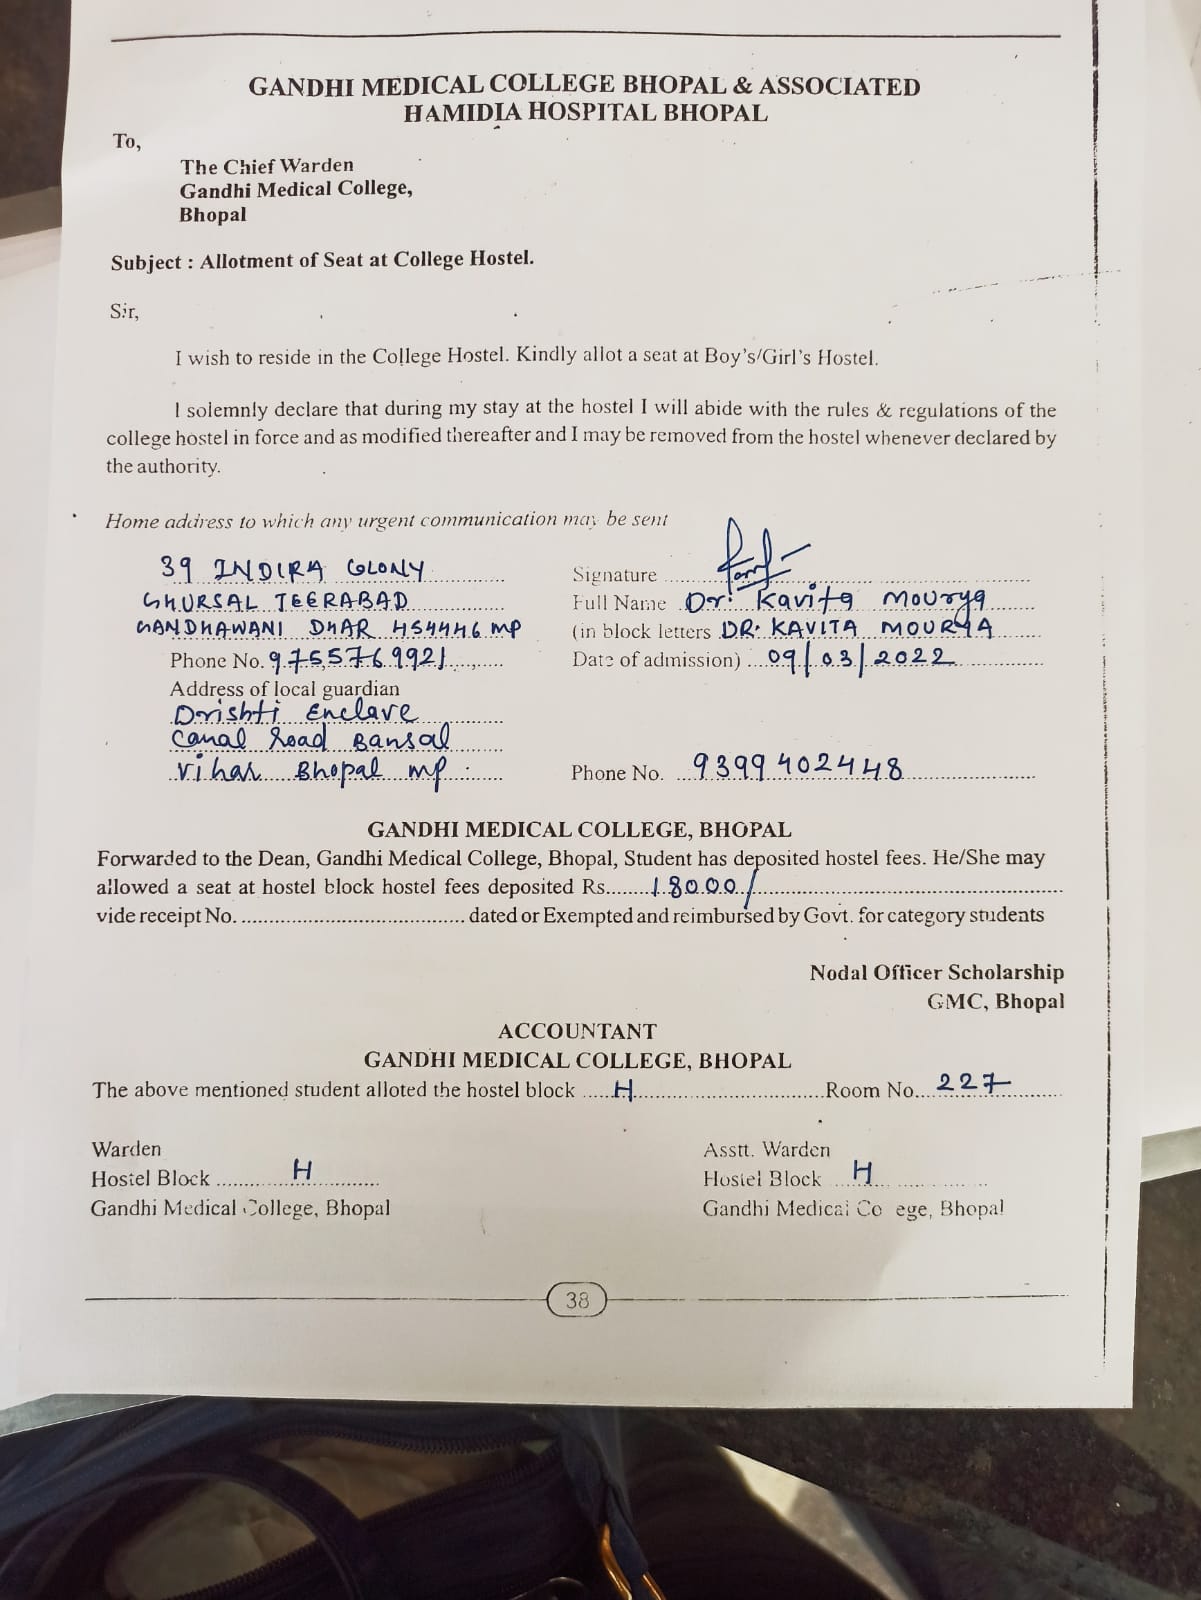 GANDHI MEDICAL COLLEGE BHOPAL & ASSOCIATED
HAMIDIA HOSPITAL BHOPAL
To,
The Chief Warden
Gandhi Medical College,
Bhopal
Subject : Allotment of Seat at College Hostel.
Sir,
I wish to reside in the College Hostel. Kindly allot a seat at Boy's/Girl's Hostel.
I solemnly declare that during my stay at the hostel I will abide with the rules & regulations of the
college hostel in force and as modified thereafter and I may be removed from the hostel whenever declared by
the authority.
Home address to which any urgent communication may be sent
39 INDIRA COLONY
GHURSAL JEERABAD
GANDHAWANI DHAR 454446 MP
Phone No. 9755769921
Address of local guardian
Drishti Enclave
Canal Road Bansal
Vihar Bhopal mp
Signature
Full Name Dr. Kavita Mourya
(in block letters DR. KAVITA MOURYA
Date of admission) 09/03/2022
Phone No. 9399402448
GANDHI MEDICAL COLLEGE, BHOPAL
Forwarded to the Dean, Gandhi Medical College, Bhopal, Student has deposited hostel fees. He/She may
allowed a seat at hostel block hostel fees deposited Rs. 18000/
vide receipt No. dated or Exempted and reimbursed by Govt. for category students
Nodal Officer Scholarship
GMC, Bhopal
ACCOUNTANT
GANDHI MEDICAL COLLEGE, BHOPAL
The above mentioned student alloted the hostel block H Room No. 227
Warden
Hostel Block H
Gandhi Medical College, Bhopal
Asstt. Warden
Hostel Block H
Gandhi Medical Co ege, Bhopal
38